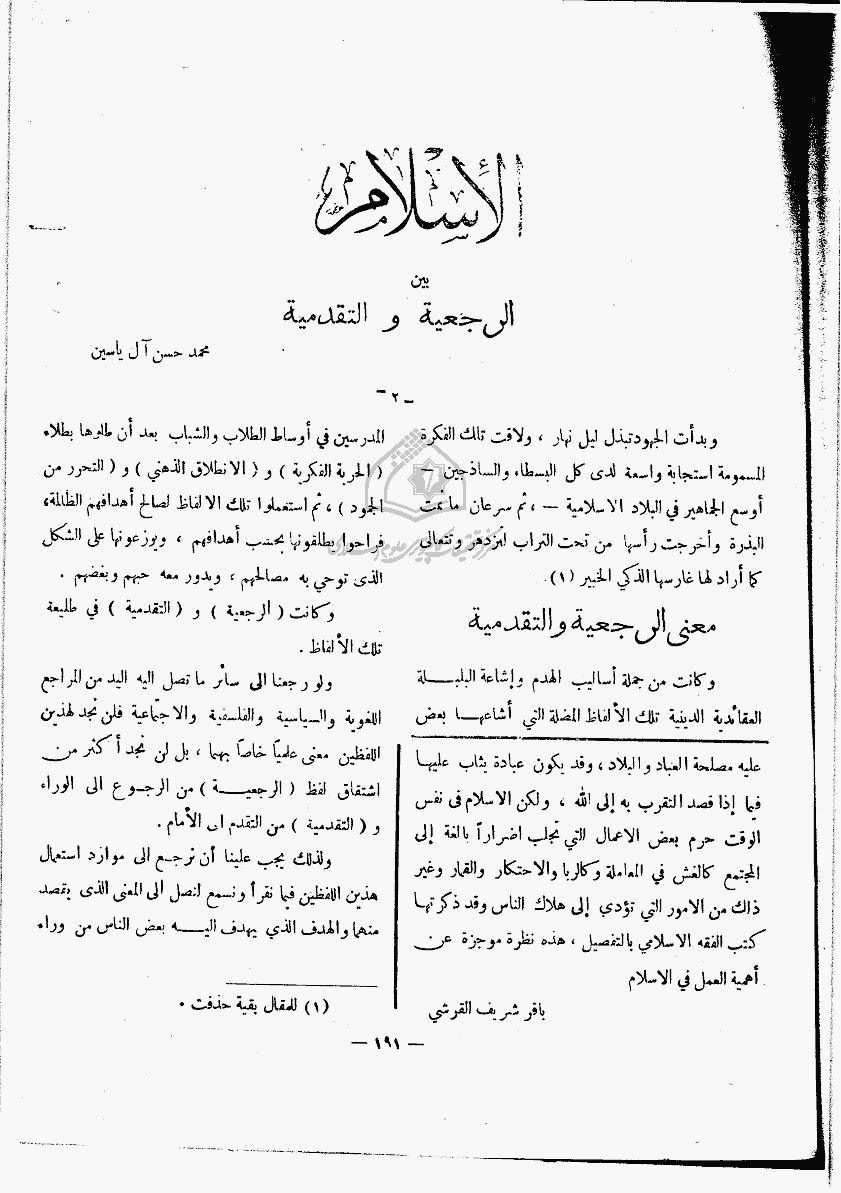 الإسلام
بين
الرجعية و التقدمية
محمد حسن آل ياسين
ـ ٢ ـ
وبدأت الجهود تبذل ليل نهار ، ولاقت تلك الفكرة
المسمومة استجابة واسعة لدى كل البسطاء والساذجين —
أوسع الجماهير في البلاد الاسلامية — ، ثم سرعان ما نمت
البذرة وأخرجت رأسها من تحت التراب لتزدهر وتتعالى
كما أراد لها غارسها الذكي الخبير (١) .
معنى الرجعية والتقدمية
وكانت من جملة أساليب الهدم وإشاعة البلبلة
العقائدية الدينية تلك الألفاظ المضللة التي أشاعها بعض
المدرسين في أوساط الطلاب والشباب بعد أن طلوها بطلاء
( الحرية الفكرية ) و ( الانطلاق الذهني ) و ( التحرر من
الجمود ) ، ثم استعملوا تلك الالفاظ لصالح أهدافهم الظالمة،
فراحوا يطلقونها بحسب أهدافهم ، ويوزعونها على الشكل
الذى توحي به مصالحهم ، ويدور معه حبهم وبغضهم .
وكانت ( الرجعية ) و ( التقدمية ) في طليعة
تلك الألفاظ .
ولو رجعنا الى سائر ما تصل اليه اليد من المراجع
اللغوية والسياسية والفلسفية والاجتماعية فلن نجد لهذين
اللفظين معنى علمياً خاصاً بهما ، بل لن نجد أكثر من
اشتقاق لفظ ( الرجعية ) من الرجوع الى الوراء
و ( التقدمية ) من التقدم الى الأمام .
ولذلك يجب علينا أن نرجع الى موارد استعمال
هذين اللفظين فيما نقرأ ونسمع لنصل الى المعنى الذى يقصد
منهما والهدف الذي يهدف اليه بعض الناس من وراء
(١) للمقال بقية حذفت .
عليه مصلحة العباد والبلاد ، وقد يكون عبادة يثاب عليها
فيما إذا قصد التقرب به إلى الله ، ولكن الاسلام في نفس
الوقت حرم بعض الاعمال التي تجلب اضراراً بالغة إلى
المجتمع كالغش في المعاملة وكالربا والاحتكار والقمار وغير
ذلك من الامور التي تؤدي إلى هلاك الناس وقد ذكرتها
كتب الفقه الاسلامي بالتفصيل ، هذه نظرة موجزة عن
أهمية العمل في الاسلام
باقر شريف القرشي
— ١٩١ —